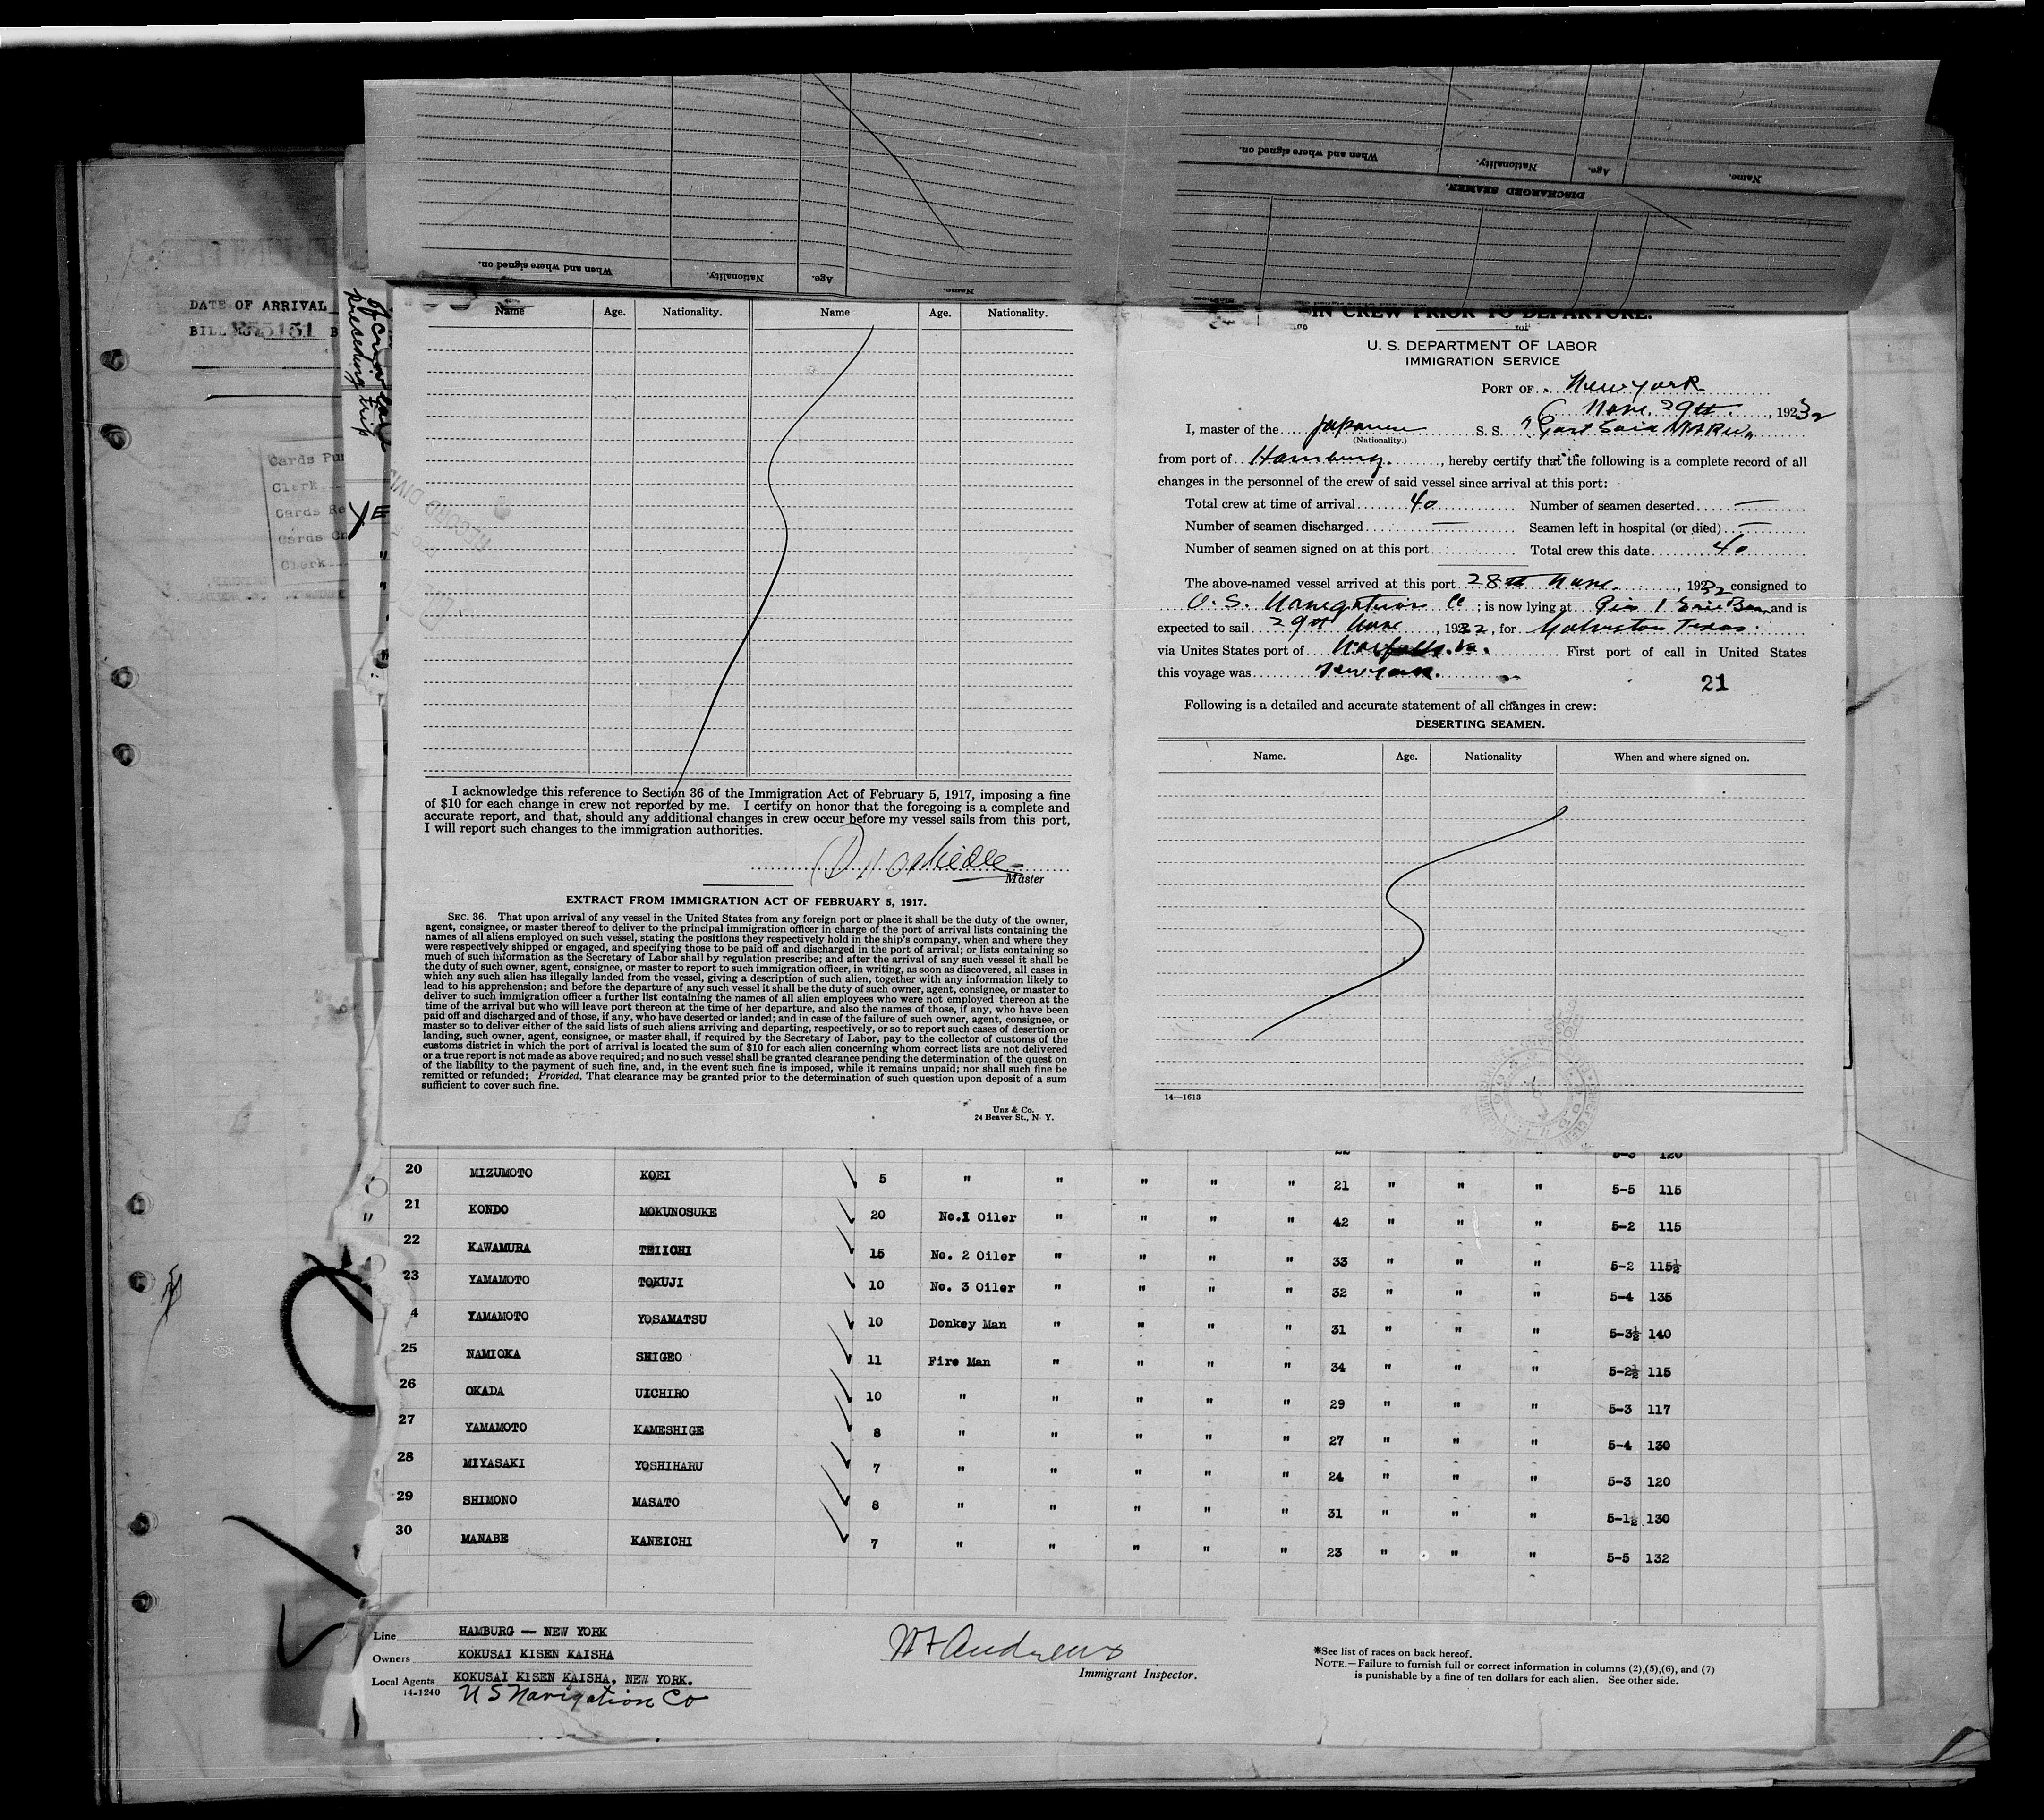 When and where signed on.
Nationality.
Age.
Name.
When and where signed on.
Nationality.
Age.
Name.
DISCHARGED SEAMEN.
DATE OF ARRIVAL
BILL
preseding trip
Cards Pun
Clerk
Cards Re
Cards Ch
Clerk
RECORD DIVI
Name Age. Nationality. Name Age. Nationality.
I acknowledge this reference to Section 36 of the Immigration Act of February 5, 1917, imposing a fine
of $10 for each change in crew not reported by me. I certify on honor that the foregoing is a complete and
accurate report, and that, should any additional changes in crew occur before my vessel sails from this port,
I will report such changes to the immigration authorities.
Master
EXTRACT FROM IMMIGRATION ACT OF FEBRUARY 5, 1917.
SEC. 36. That upon arrival of any vessel in the United States from any foreign port or place it shall be the duty of the owner,
agent, consignee, or master thereof to deliver to the principal immigration officer in charge of the port of arrival lists containing the
names of all aliens employed on such vessel, stating the positions they respectively hold in the ship's company, when and where they
were respectively shipped or engaged, and specifying those to be paid off and discharged in the port of arrival; or lists containing so
much of such information as the Secretary of Labor shall by regulation prescribe; and after the arrival of any such vessel it shall be
the duty of such owner, agent, consignee, or master to report to such immigration officer, in writing, as soon as discovered, all cases in
which any such alien has illegally landed from the vessel, giving a description of such alien, together with any information likely to
lead to his apprehension; and before the departure of any such vessel it shall be the duty of such owner, agent, consignee, or master to
deliver to such immigration officer a further list containing the names of all alien employees who were not employed thereon at the
time of the arrival but who will leave port thereon at the time of her departure, and also the names of those, if any, who have been
paid off and discharged and of those, if any, who have deserted or landed; and in case of the failure of such owner, agent, consignee, or
master so to deliver either of the said lists of such aliens arriving and departing, respectively, or so to report such cases of desertion or
landing, such owner, agent, consignee, or master shall, if required by the Secretary of Labor, pay to the collector of customs of the
customs district in which the port of arrival is located the sum of $10 for each alien concerning whom correct lists are not delivered
or a true report is not made as above required; and no such vessel shall be granted clearance pending the determination of the quest on
of the liability to the payment of such fine, and, in the event such fine is imposed, while it remains unpaid; nor shall such fine be
remitted or refunded; Provided, That clearance may be granted prior to the determination of such question upon deposit of a sum
sufficient to cover such fine.
Unz & Co.
24 Beaver St., N. Y.
IN CREW PRIOR TO DEPARTURE.
U. S. DEPARTMENT OF LABOR
IMMIGRATION SERVICE
PORT OF New York
Nove. 29th, 1932
I, master of the Japanese S. S. "Port Said MARU"
(Nationality.)
from port of Hamburg, hereby certify that the following is a complete record of all
changes in the personnel of the crew of said vessel since arrival at this port:
Total crew at time of arrival 40 Number of seamen deserted —
Number of seamen discharged — Seamen left in hospital (or died) —
Number of seamen signed on at this port Total crew this date 40
The above-named vessel arrived at this port 28th Nove., 1932 consigned to
U. S. Navigation Co; is now lying at Pier 1 Erie Basin and is
expected to sail 29th Nove, 1932, for Galveston Texas.
via Unites States port of Norfolk. Va. First port of call in United States
this voyage was New York.
21
Following is a detailed and accurate statement of all changes in crew:
DESERTING SEAMEN.
Name. Age. Nationality When and where signed on.
14—1613
20 MIZUMOTO KOEI 5 " " " " " 21 " " " 5-5 115
21 KONDO MOKUNOSUKE 20 No.1 Oiler " " " " 42 " " " 5-2 115
22 KAWAMURA TEIICHI 15 No. 2 Oiler " " " " 33 " " " 5-2 115½
23 YAMAMOTO TOKUJI 10 No. 3 Oiler " " " " 32 " " " 5-4 135
4 YAMAMOTO YOSAMATSU 10 Donkey Man " " " " 31 " " " 5-3½ 140
25 NAMIOKA SHIGEO 11 Fire Man " " " " 34 " " " 5-2½ 115
26 OKADA UICHIRO 10 " " " " " 29 " " " 5-3 117
27 YAMAMOTO KAMESHIGE 8 " " " " " 27 " " " 5-4 130
28 MIYASAKI YOSHIHARU 7 " " " " " 24 " " " 5-3 120
29 SHIMONO MASATO 8 " " " " " 31 " " " 5-1½ 130
30 MANABE KANEICHI 7 " " " " " 23 " " " 5-5 132
Line HAMBURG — NEW YORK
Owners KOKUSAI KISEN KAISHA
Local Agents KOKUSAI KISEN KAISHA, NEW YORK.
14-1240 U S Navigation Co
W F Andrews
Immigrant Inspector.
*See list of races on back hereof.
NOTE.—Failure to furnish full or correct information in columns (2),(5),(6), and (7)
is punishable by a fine of ten dollars for each alien. See other side.